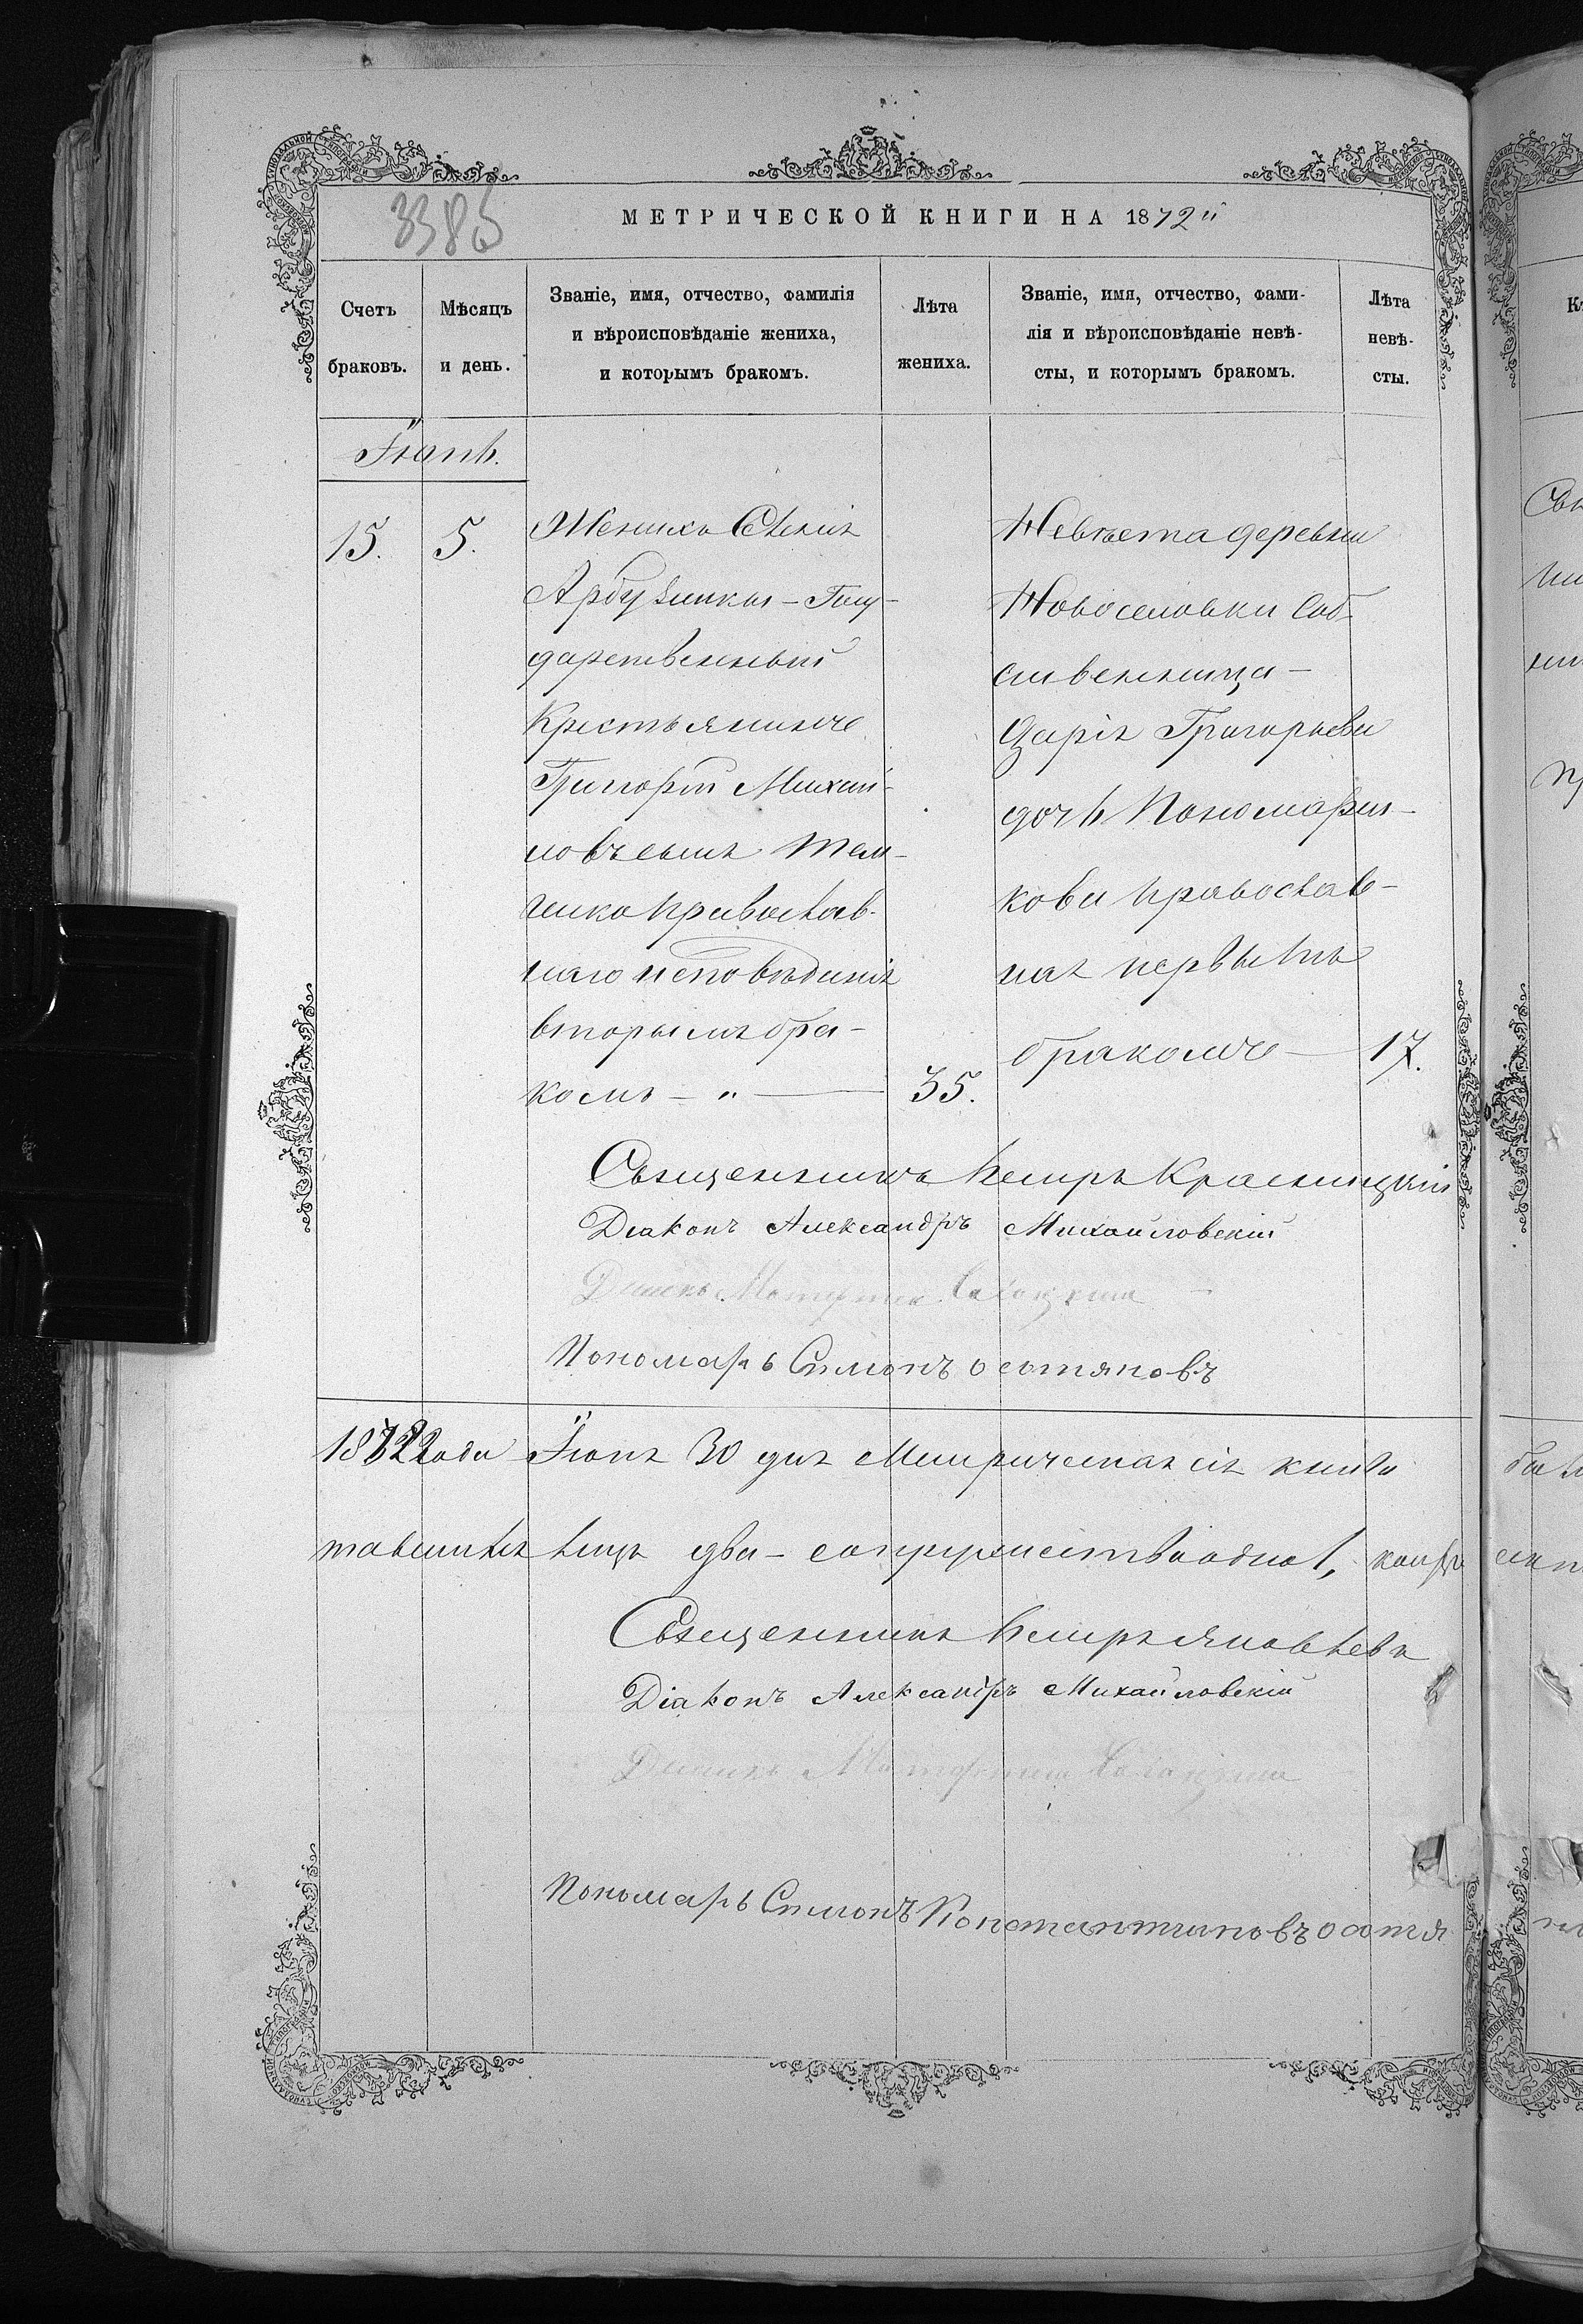 3386
МЕТРИЧЕСКОЙ КНИГИ НА 1872й
Счетъ браковъ.
Мѣсяцъ и день.
Званіе, имя, отчество, фамилія
и вѣроисповѣданіе жениха,
и которымъ бракомъ.
Лѣта жениха.
Званіе, имя, отчество, фами-
лія и вѣроисповѣданіе невѣ-
сты, и которымъ бракомъ.
Лѣта невѣ-
сты.
Іюнь.
15. 5.
Женихъ Селенія
Арбузинки - Госу-
дарственный
Крестьянинъ
Григорій Михай-
ловъ сынъ
православ-
наго исповѣданія
вторымъ бра-
комъ — " — 35.
Невѣста деревни
Новоселовки Соб-
ственница -
Дарія Григорьева
дочь Пономарен-
кова православ-
ная первымъ
бракомъ — 17.
Священникъ Петръ Красницкій
Діаконъ Александръ Михайловскій
Дьячекъ
Пономарь Симонъ Остяновъ
1872 года Іюня 30 дня Метрическая сія книга
два - супружество одно 1,
Священникъ Петръ Яковлевъ
Діаконъ Александръ Михайловскій
Дьячекъ
Пономарь Симонъ Константиновъ Остя